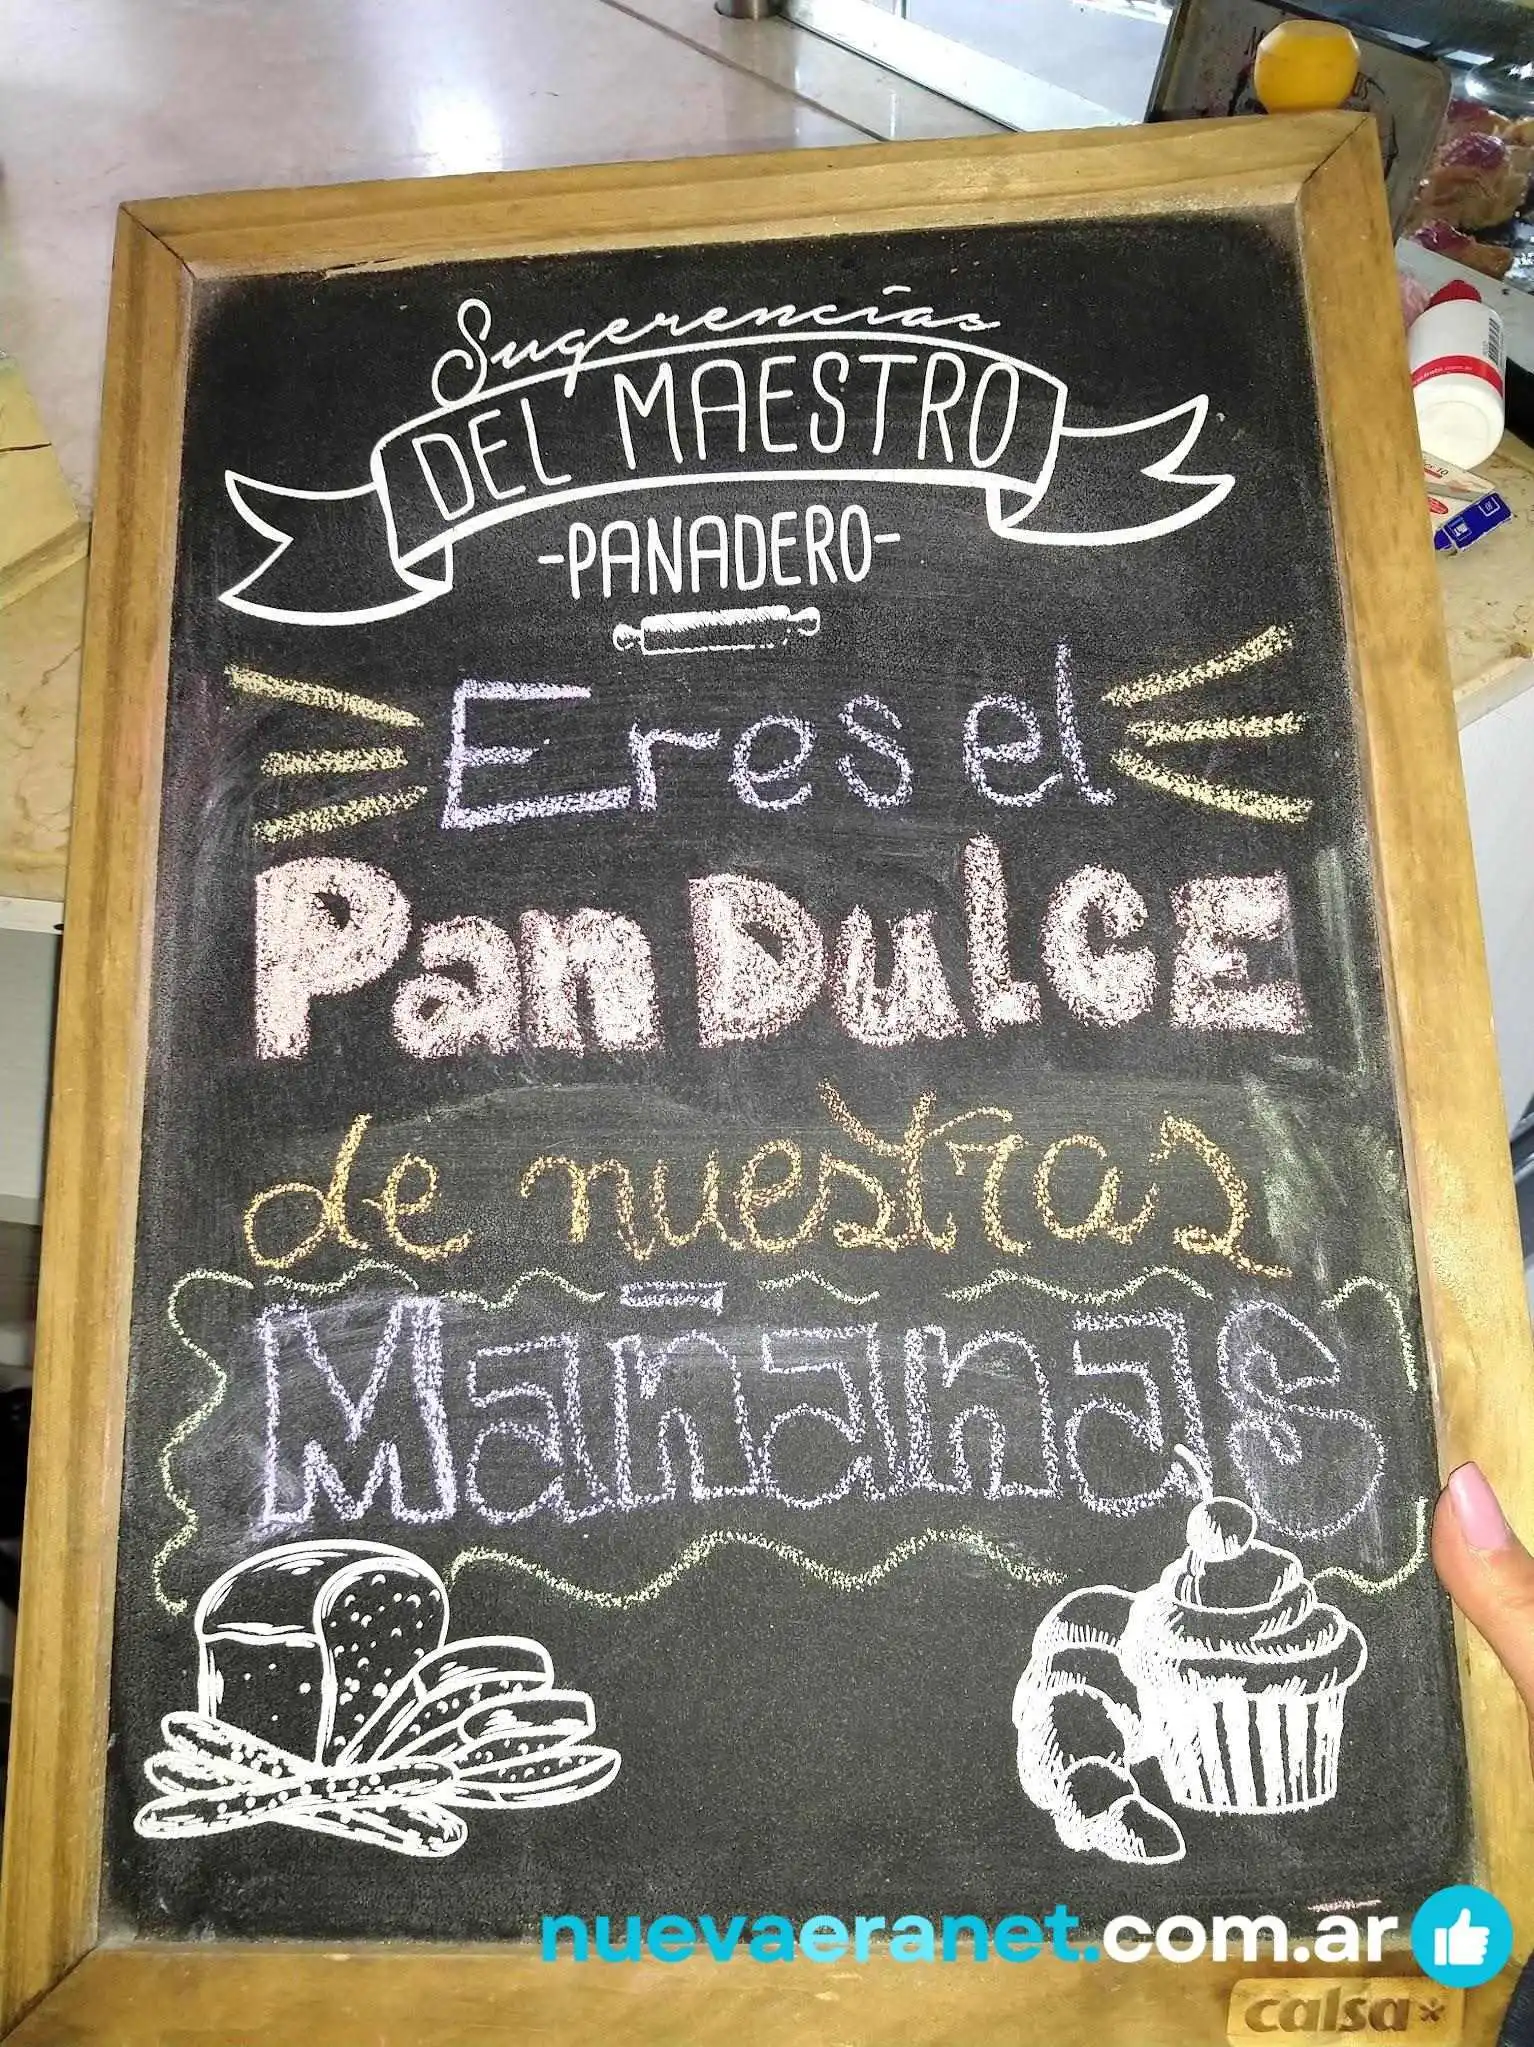 Sugerencias
DEL MAESTRO
-PANADERO-
Eres el
Pan DulCE
de nuestras
MañanaS
nuevaeranet.com.ar
calsa